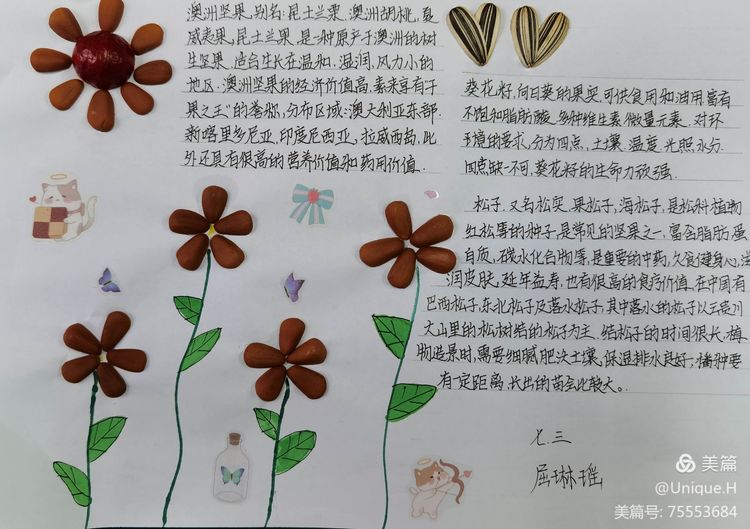 澳洲坚果,别名:昆士兰栗.澳洲胡桃,夏
威夷果,昆士兰果,是一种原产于澳洲的树
生坚果,适合生长在温和.湿润,风力小的
地区.澳洲坚果的经济价值高,素来享有"干
果之王"的誉称,分布区域:澳大利亚东部.
新喀里多尼亚,印度尼西亚,拉威西岛,此
外还具有很高的营养价值和药用价值.
葵花籽,向日葵的果实,可供食用和油用,富有
不饱和脂肪酸、多种维生素、微量元素.对环
环境的要求,分为四点,土壤.温度.光照.水分.
四点缺一不可,葵花籽的生命力顽强.
松子.又名松实,果松子,海松子,是松科植物
红松等的种子,是常见的坚果之一.富含脂肪,蛋
白质,碳水化合物等,是重要的中药,久食健身心,滋
润皮肤,延年益寿,也有很高的食疗价值.在中国有
巴西松子,东北松子及落水松子,其中落水的松子以云贵川
大山里的松树结的松子为主.结松子的时间很长,植
物造景时,需要细腻肥沃土壤,保湿排水良好,播种要
有一定距离,长出的苗会比较大。
七.三
屈琳瑶
美篇
@Unique.H
美篇号: 75553684